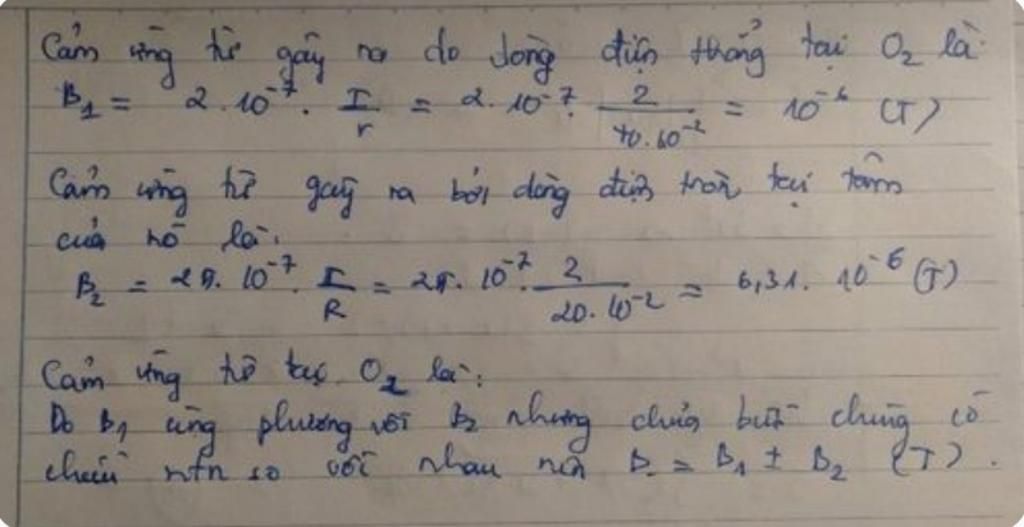 Cảm ứng từ gây ra do dòng điện thẳng tại O₂ là:
B₁ = 2.10⁻⁷. I/r = 2.10⁻⁷. 2/(40.10⁻²) = 10⁻⁶ (T)
Cảm ứng từ gây ra bởi dòng điện tròn tại tâm
của nó là:
B₂ = 2π.10⁻⁷. I/R = 2π.10⁻⁷. 2/(20.10⁻²) = 6,31.10⁻⁶ (T)
Cảm ứng từ tại O₂ là:
Do B₁ cùng phương với B₂ nhưng chưa biết chúng có
chiều ntn so với nhau nên B = B₁ ± B₂ (T).